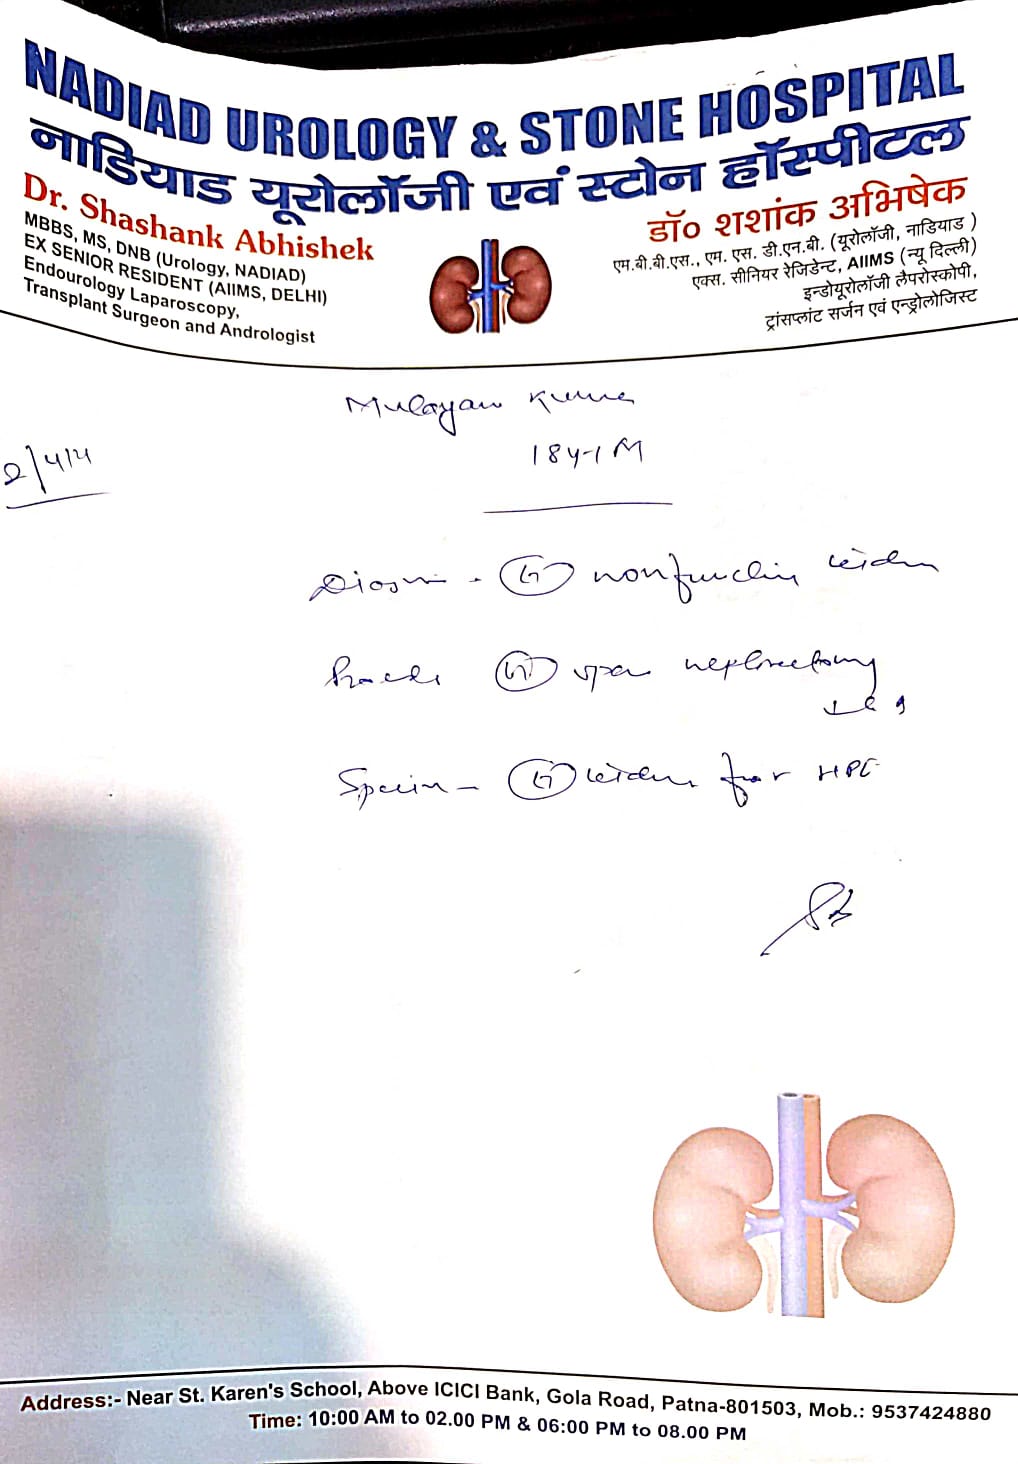 NADIAD UROLOGY & STONE HOSPITAL
नाडियाड यूरोलॉजी एवं स्टोन हॉस्पीटल
Dr. Shashank Abhishek
MBBS, MS, DNB (Urology, NADIAD)
EX SENIOR RESIDENT (AIIMS, DELHI)
Endourology Laparoscopy,
Transplant Surgeon and Andrologist
डॉ० शशांक अभिषेक
एम.बी.बी.एस., एम. एस. डी.एन.बी. (यूरोलॉजी, नाडियाड )
एक्स. सीनियर रेजिडेन्ट, AIIMS (न्यू दिल्ली)
इन्डोयूरोलॉजी लैपरोस्कोपी,
ट्रांसप्लांट सर्जन एवं एन्ड्रोलोजिस्ट
Mulayam Kumar
18y/M
nonfunctioning kidney
open nephrectomy
kidney for HPE
Address:- Near St. Karen's School, Above ICICI Bank, Gola Road, Patna-801503, Mob.: 9537424880
Time: 10:00 AM to 02.00 PM & 06:00 PM to 08.00 PM